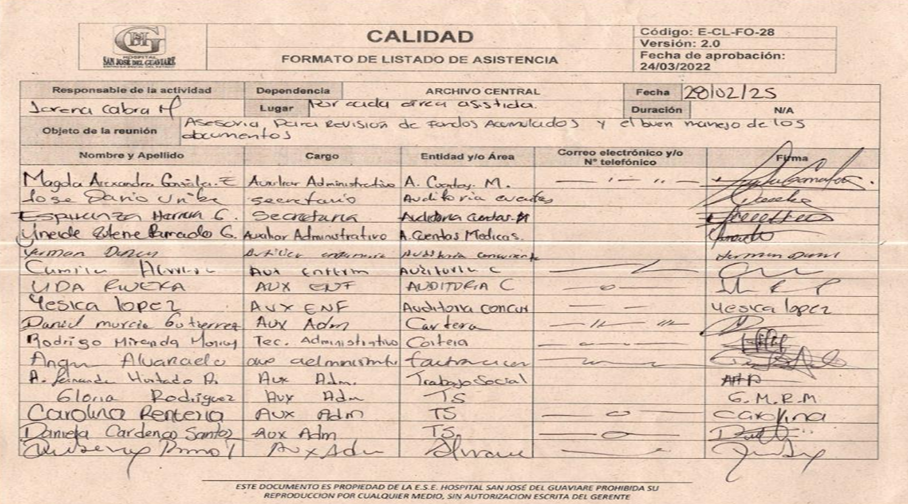 HOSPITAL
SAN JOSÉ DEL GUAVIARE
CALIDAD
FORMATO DE LISTADO DE ASISTENCIA
Código: E-CL-FO-28
Versión: 2.0
Fecha de aprobación:
24/03/2022
Responsable de la actividad Dependencia ARCHIVO CENTRAL Fecha 28/02/25
Lorena Cabra M Lugar Por cada área asistida. Duración N/A
Objeto de la reunión Asesoria para Revisión de fondos Acumulados y el buen manejo de los
documentos
Nombre y Apellido Cargo Entidad y/o Área Correo electrónico y/o N° telefónico Firma
Magda Alexandra González. Auxiliar Administrativo A. Cuentas. M.
Jose Dario secretario Auditoria cuentas
Esperanza Herrera C. Secretaria Auditoria cuentas M
A. Cuentas Medicas. Auxiliar Administrativo
Auditoria
Aux Enferm Auditoria C
RIVERA AUX ENF AUDITORIA C
Yesica lopez AUX ENF Auditoria concur Yesica lopez
Daniel murcia Gutierrez Aux Adm Cartera
Rodrigo Miranda Tec. Administrativo Cartera
Alvarado facturacion
A. Fernanda Hurtado P. Aux Adm. Trabajo Social AHP
Gloria Rodriguez Aux Adm TS G. M. R. M
Carolina Renteria Aux Adm TS Carolina
Daniela Cardenas Santos Aux Adm TS
Aux Adm
ESTE DOCUMENTO ES PROPIEDAD DE LA E.S.E. HOSPITAL SAN JOSÉ DEL GUAVIARE PROHIBIDA SU
REPRODUCCION POR CUALQUIER MEDIO, SIN AUTORIZACION ESCRITA DEL GERENTE